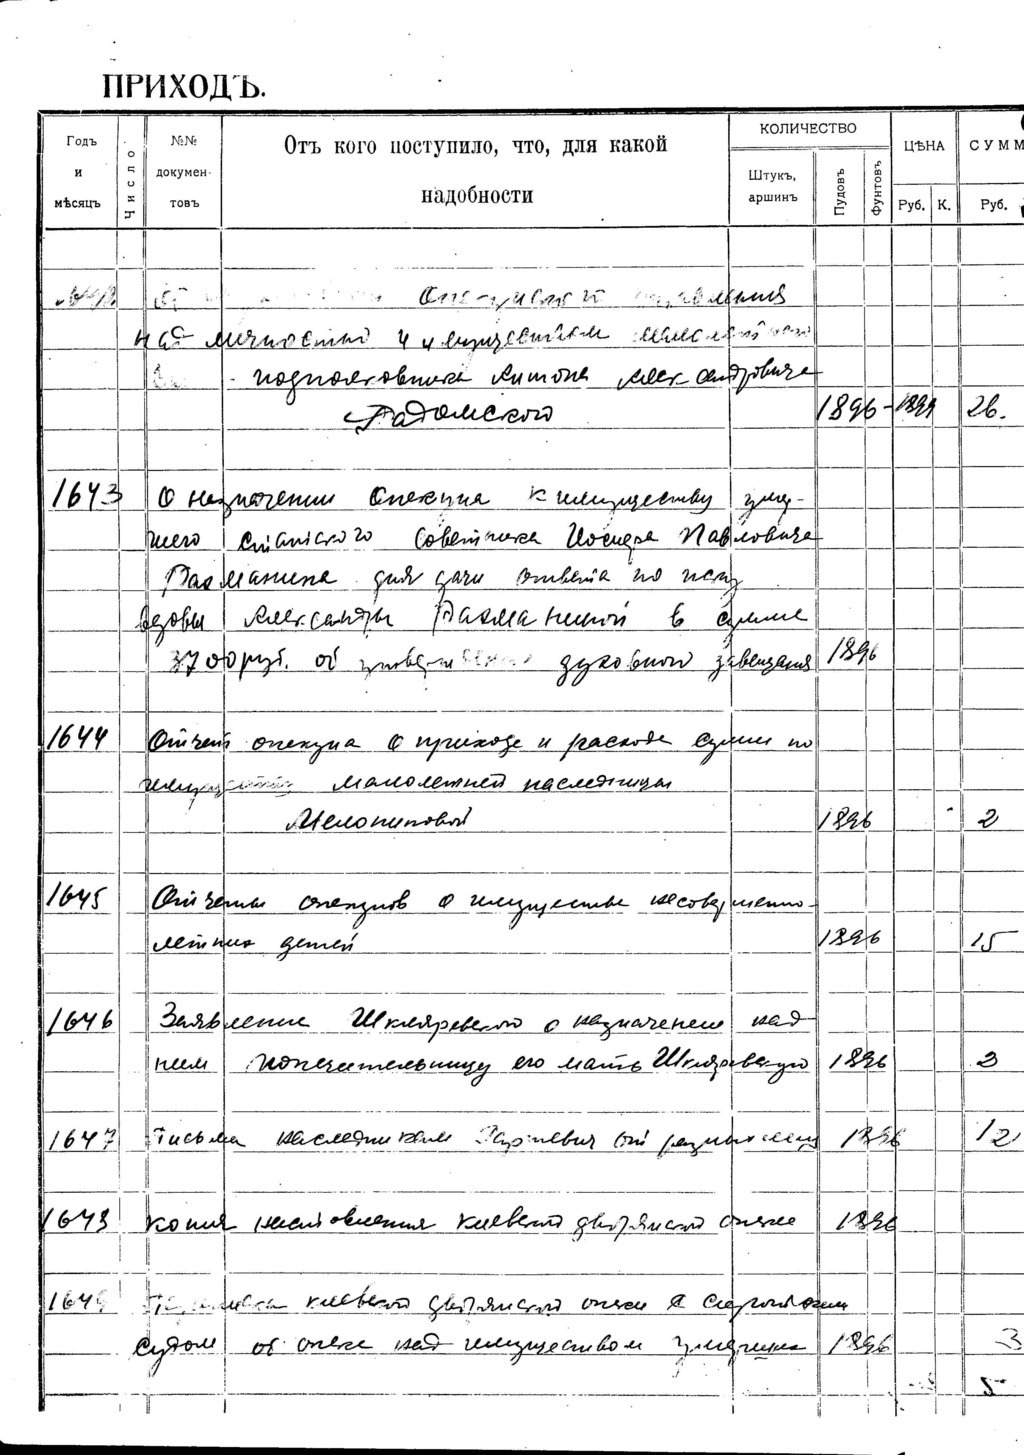 ПРИХОДЪ.
Годъ и мѣсяцъ
Число
№№ докумен- товъ
Отъ кого поступило, что, для какой
надобности
КОЛИЧЕСТВО
Штукъ, аршинъ
Пудовъ
Фунтовъ
ЦѢНА
Руб. К.
СУММ
Руб.
над личностью и имуществом
подполковника Антона Александровича
Радомского 1896-1899 26.
1643 О назначении опекуна к имуществу умер-
шего статского советника Иосифа Павловича
Рахманина для дачи ответа по иску
вдовы Александры Рахманиной в сумме
3700 руб. об духовного завещания 1896
1644 Отчет опекуна о приходе и расходе сумм по
имуществу малолетней наследницы
1896 2
1645 Отчеты опекунов о имуществе несовершенно-
летних детей 1896 15
1646 Заявление Шкляревского о назначении над
ним попечительницу его мать Шкляревскую 1896 3
1647 Письма наследникам от разных лиц 1896 12
1648 копия Киевской дворянской опеки 1896
1649 Переписка киевской дворянской опеки с Сиротским
судом об опеке над имуществом умерших 1896 3
5